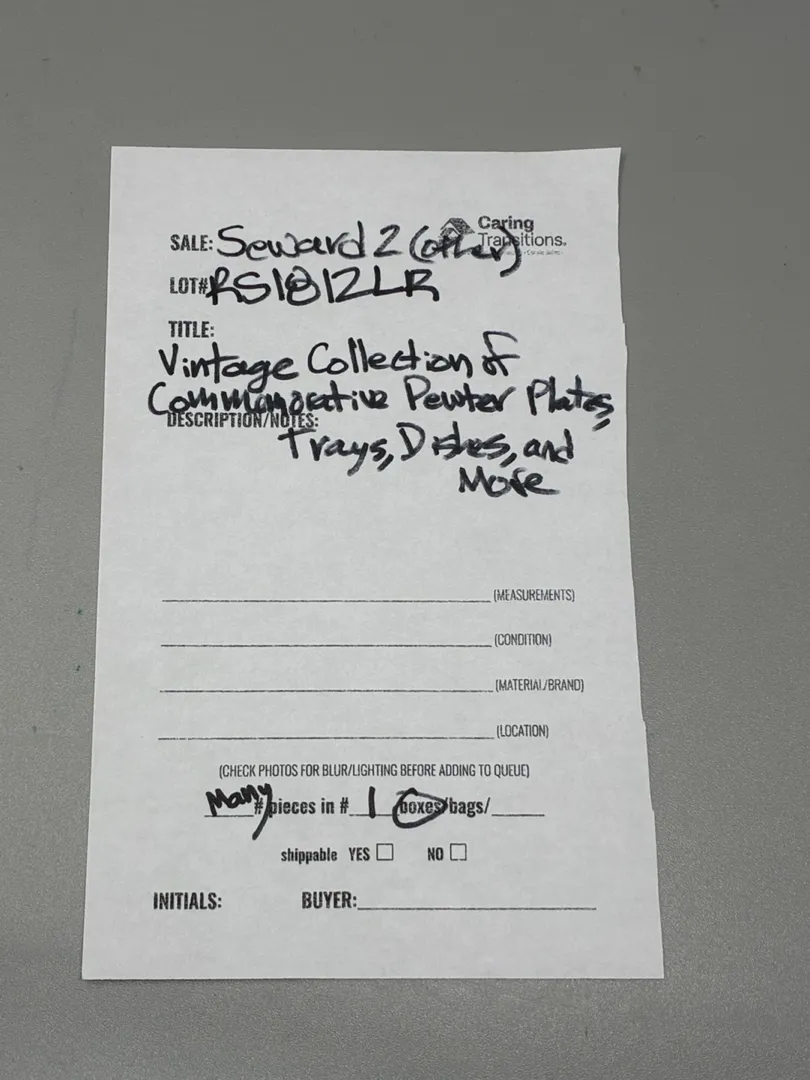 Caring
SALE: Seward 2 (other) Transitions.
LOT# RS1812LR
TITLE:
Vintage Collection of
Commemorative Pewter Plates,
DESCRIPTION/NOTES:
Trays, Dishes, and
More
(MEASUREMENTS)
(CONDITION)
(MATERIAL/BRAND)
(LOCATION)
(CHECK PHOTOS FOR BLUR/LIGHTING BEFORE ADDING TO QUEUE)
Many # pieces in # 1 boxes/bags/
shippable YES NO
INITIALS: BUYER: